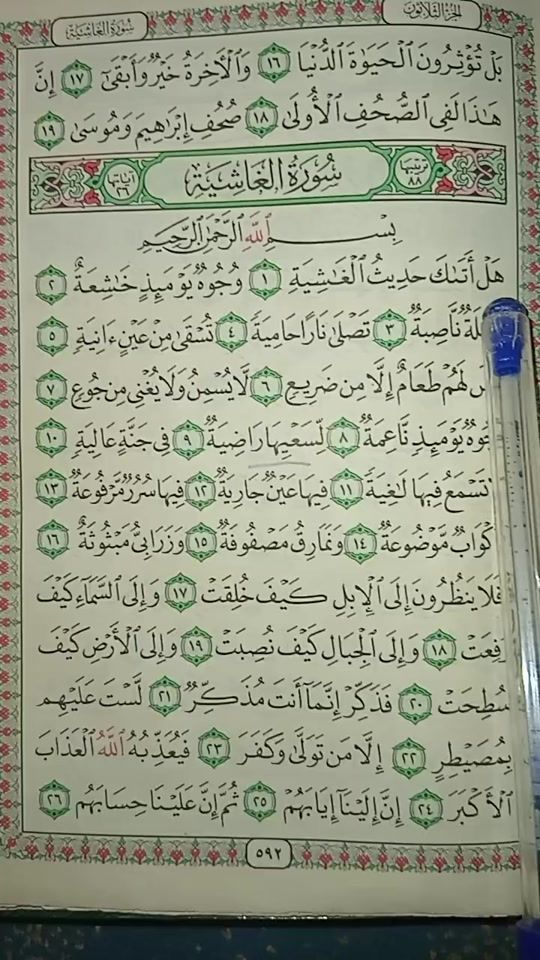 سُورَةُ الغَاشِيَةِ
الجُزْءُ الثَّلَاثُونَ
بَلْ تُؤْثِرُونَ ٱلْحَيَوٰةَ ٱلدُّنْيَا ١٦ وَٱلْأَخِرَةُ خَيْرٌ وَأَبْقَىٰٓ ١٧ إِنَّ
هَٰذَا لَفِى ٱلصُّحُفِ ٱلْأُولَىٰ ١٨ صُحُفِ إِبْرَٰهِيمَ وَمُوسَىٰ ١٩
ترتيبها ٨٨ سُورَةُ الغَاشِيَةِ آياتها ٢٦
بِسْمِ ٱللَّهِ ٱلرَّحْمَٰنِ ٱلرَّحِيمِ
هَلْ أَتَىٰكَ حَدِيثُ ٱلْغَٰشِيَةِ ١ وُجُوهٌ يَوْمَئِذٍ خَٰشِعَةٌ ٢
نَّاصِبَةٌ ٣ تَصْلَىٰ نَارًا حَامِيَةً ٤ تُسْقَىٰ مِنْ عَيْنٍ ءَانِيَةٍ ٥
لَهُمْ طَعَامٌ إِلَّا مِن ضَرِيعٍ ٦ لَّا يُسْمِنُ وَلَا يُغْنِى مِن جُوعٍ ٧
يَوْمَئِذٍ نَّاعِمَةٌ ٨ لِّسَعْيِهَا رَاضِيَةٌ ٩ فِى جَنَّةٍ عَالِيَةٍ ١٠
تَسْمَعُ فِيهَا لَٰغِيَةً ١١ فِيهَا عَيْنٌ جَارِيَةٌ ١٢ فِيهَا سُرُرٌ مَّرْفُوعَةٌ ١٣
مَّوْضُوعَةٌ ١٤ وَنَمَارِقُ مَصْفُوفَةٌ ١٥ وَزَرَابِىُّ مَبْثُوثَةٌ ١٦
يَنظُرُونَ إِلَى ٱلْإِبِلِ كَيْفَ خُلِقَتْ ١٧ وَإِلَى ٱلسَّمَآءِ كَيْفَ
١٨ وَإِلَى ٱلْجِبَالِ كَيْفَ نُصِبَتْ ١٩ وَإِلَى ٱلْأَرْضِ كَيْفَ
سُطِحَتْ ٢٠ فَذَكِّرْ إِنَّمَآ أَنتَ مُذَكِّرٌ ٢١ لَّسْتَ عَلَيْهِم
بِمُصَيْطِرٍ ٢٢ إِلَّا مَن تَوَلَّىٰ وَكَفَرَ ٢٣ فَيُعَذِّبُهُ ٱللَّهُ ٱلْعَذَابَ
ٱلْأَكْبَرَ ٢٤ إِنَّ إِلَيْنَآ إِيَابَهُمْ ٢٥ ثُمَّ إِنَّ عَلَيْنَا حِسَابَهُم ٢٦
٥٩٢